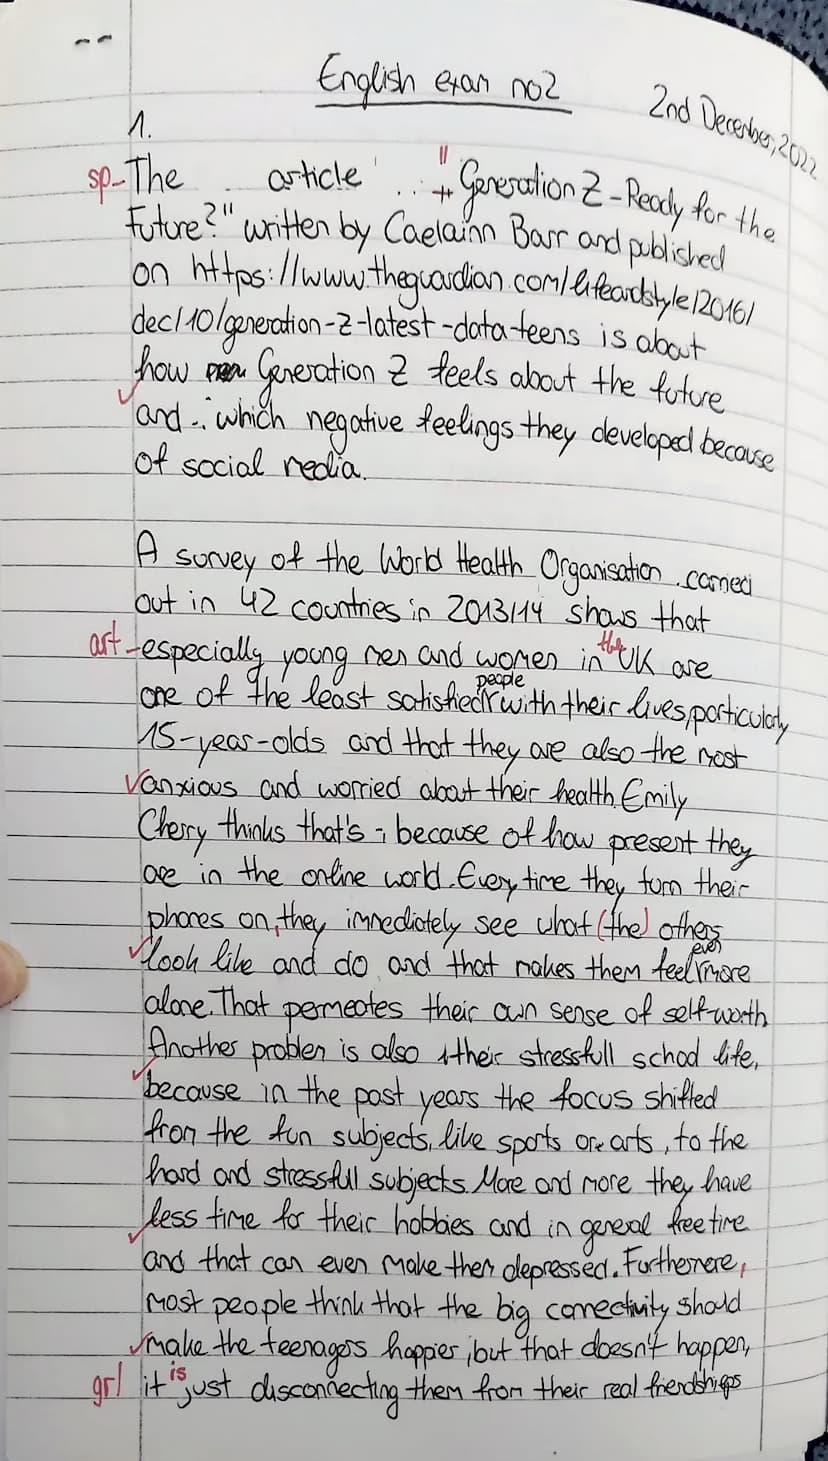 English exam no2
2nd December, 2022
1.
sp- The article " Generation Z - Ready for the
Future?" written by Caelainn Barr and published
on https://www.theguardian.com/lifeandstyle/2016/
dec/10/generation-z-latest-data-teens is about
how Generation Z feels about the future
and which negative feelings they developed because
of social media.
A survey of the World Health Organisation carried
out in 42 countries in 2013/14 shows that
art - especially young men and women in the UK are
one of the least satisfied people with their lives, particularly
15-year-olds and that they are also the most
anxious and worried about their health. Emily
Cherry thinks that's because of how present they
are in the online world. Every time they turn their
phones on, they immediately see what (the) others
look like and do and that makes them feel even more
alone. That permeates their own sense of self-worth
Another problem is also their stressfull school life,
because in the past years the focus shifted
from the fun subjects, like sports or arts, to the
hard and stressfull subjects. More and more they have
less time for their hobbies and in general free time
and that can even make them depressed. Furthemere,
most people think that the big connectivity should
make the teenagers happier, but that doesn't happen,
gr/ it is just disconnecting them from their real friendships